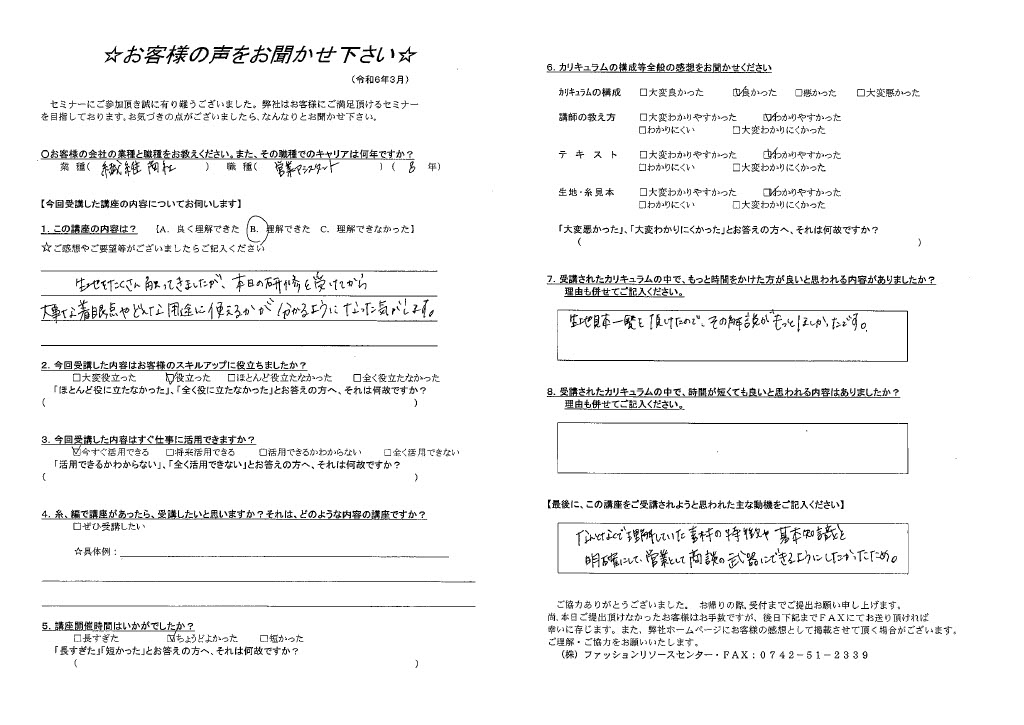 ☆お客様の声をお聞かせ下さい☆
（令和6年3月）
セミナーにご参加頂き誠に有り難うございました。弊社はお客様にご満足頂けるセミナー
を目指しております。お気づきの点がございましたら、なんなりとお聞かせ下さい。
〇お客様の会社の業種と職種をお教えください。また、その職種でのキャリアは何年ですか？
業 種（ 繊維商社 ） 職 種（ 営業アシスタント ）（ 8 年）
【今回受講した講座の内容についてお伺いします】
1．この講座の内容は？ 【A．良く理解できた B．理解できた C．理解できなかった】
☆ご感想やご要望等がございましたらご記入ください
生地をたくさん触ってきましたが、本日の研修を受けてから
大事な着眼点やどんな用途に使えるかが分かるようになった気がします。
2．今回受講した内容はお客様のスキルアップに役立ちましたか？
□大変役立った ☑役立った □ほとんど役立たなかった □全く役立たなかった
「ほとんど役に立たなかった」、「全く役に立たなかった」とお答えの方へ、それは何故ですか？
（ ）
3．今回受講した内容はすぐ仕事に活用できますか？
☑今すぐ活用できる □将来活用できる □活用できるかわからない □全く活用できない
「活用できるかわからない」、「全く活用できない」とお答えの方へ、それは何故ですか？
（ ）
4．糸、編で講座があったら、受講したいと思いますか？それは、どのような内容の講座ですか？
□ぜひ受講したい
☆具体例：
5．講座開催時間はいかがでしたか？
□長すぎた ☑ちょうどよかった □短かった
「長すぎた」「短かった」とお答えの方へ、それは何故ですか？
（ ）
6．カリキュラムの構成等全般の感想をお聞かせください
カリキュラムの構成 □大変良かった ☑良かった □悪かった □大変悪かった
講師の教え方 □大変わかりやすかった ☑わかりやすかった
□わかりにくい □大変わかりにくかった
テ キ ス ト □大変わかりやすかった ☑わかりやすかった
□わかりにくい □大変わかりにくかった
生地・糸見本 □大変わかりやすかった ☑わかりやすかった
□わかりにくい □大変わかりにくかった
「大変悪かった」、「大変わかりにくかった」とお答えの方へ、それは何故ですか？
（ ）
7．受講されたカリキュラムの中で、もっと時間をかけた方が良いと思われる内容がありましたか？
理由も併せてご記入ください。
生地見本一覧を頂けたので、その解説がもっとほしかったです。
8．受講されたカリキュラムの中で、時間が短くても良いと思われる内容はありましたか？
理由も併せてご記入ください。
【最後に、この講座をご受講されようと思われた主な動機をご記入ください】
なんとなくで理解していた素材の特徴や基本知識を
明確にして、営業として商談の武器にできるようにしたかったため。
ご協力ありがとうございました。 お帰りの際、受付までご提出お願い申し上げます。
尚、本日ご提出頂けなかったお客様はお手数ですが、後日下記までＦＡＸにてお送り頂ければ
幸いに存じます。また、弊社ホームページにお客様の感想として掲載させて頂く場合がございます。
ご理解・ご協力をお願いいたします。
（株）ファッションリソースセンター・ＦＡＸ：０７４２－５１－２３３９